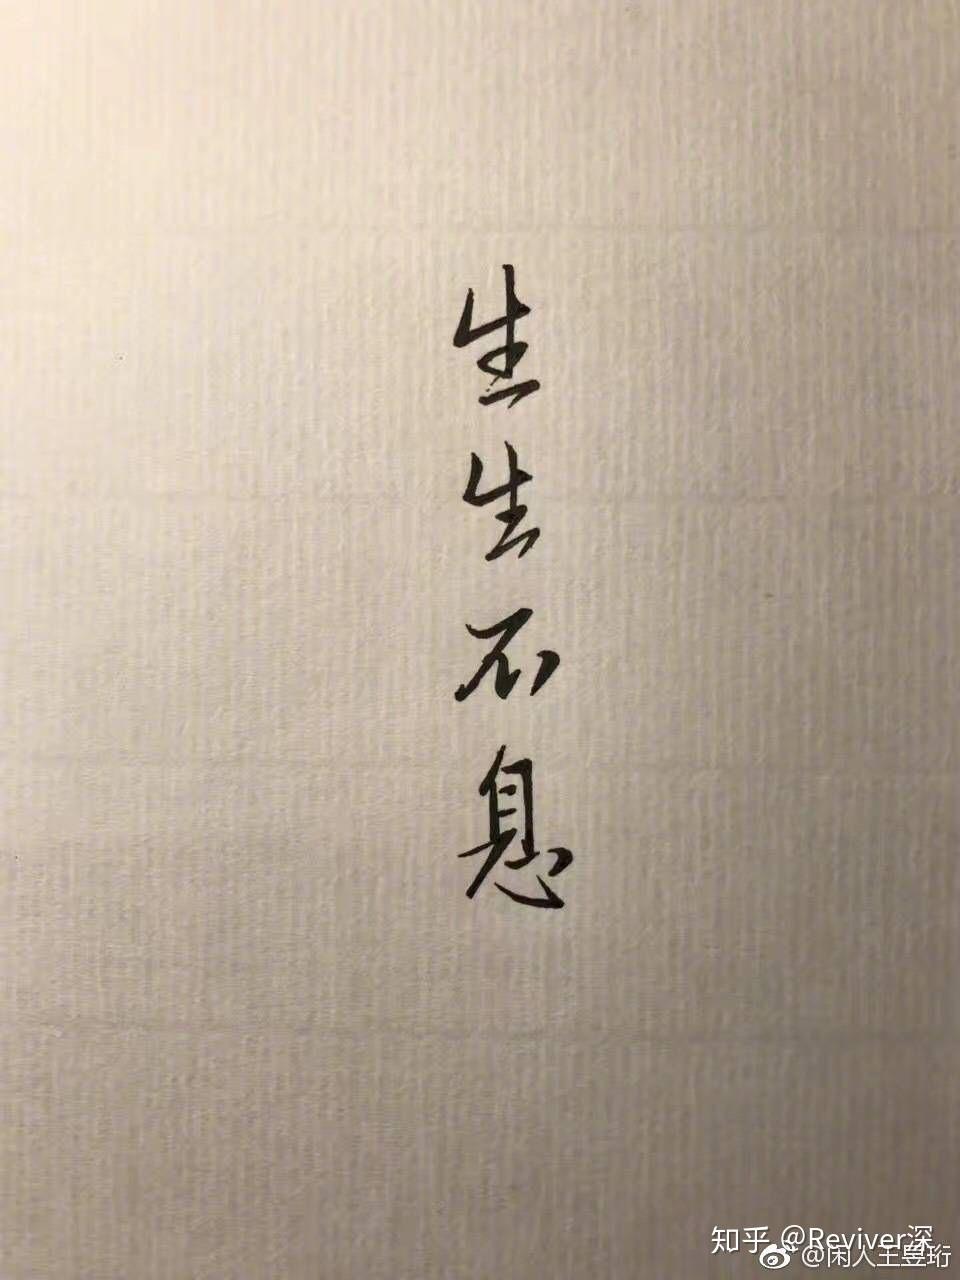 生生不息
知乎 @Reviver深
@闲人王昱珩